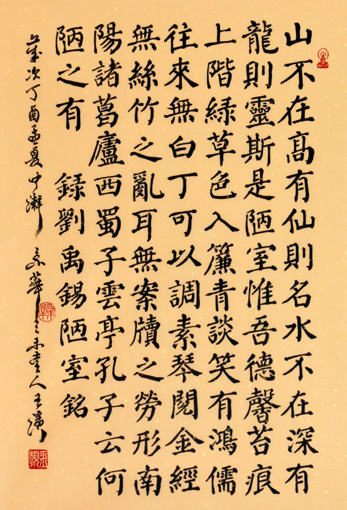 山不在高有仙則名水不在深有
龍則靈斯是陋室惟吾德馨苔痕
上階綠草色入簾青談笑有鴻儒
往來無白丁可以調素琴閱金經
無絲竹之亂耳無案牘之勞形南
陽諸葛廬西蜀子雲亭孔子云何
陋之有 錄劉禹錫陋室銘
歲次丁酉孟夏中澣